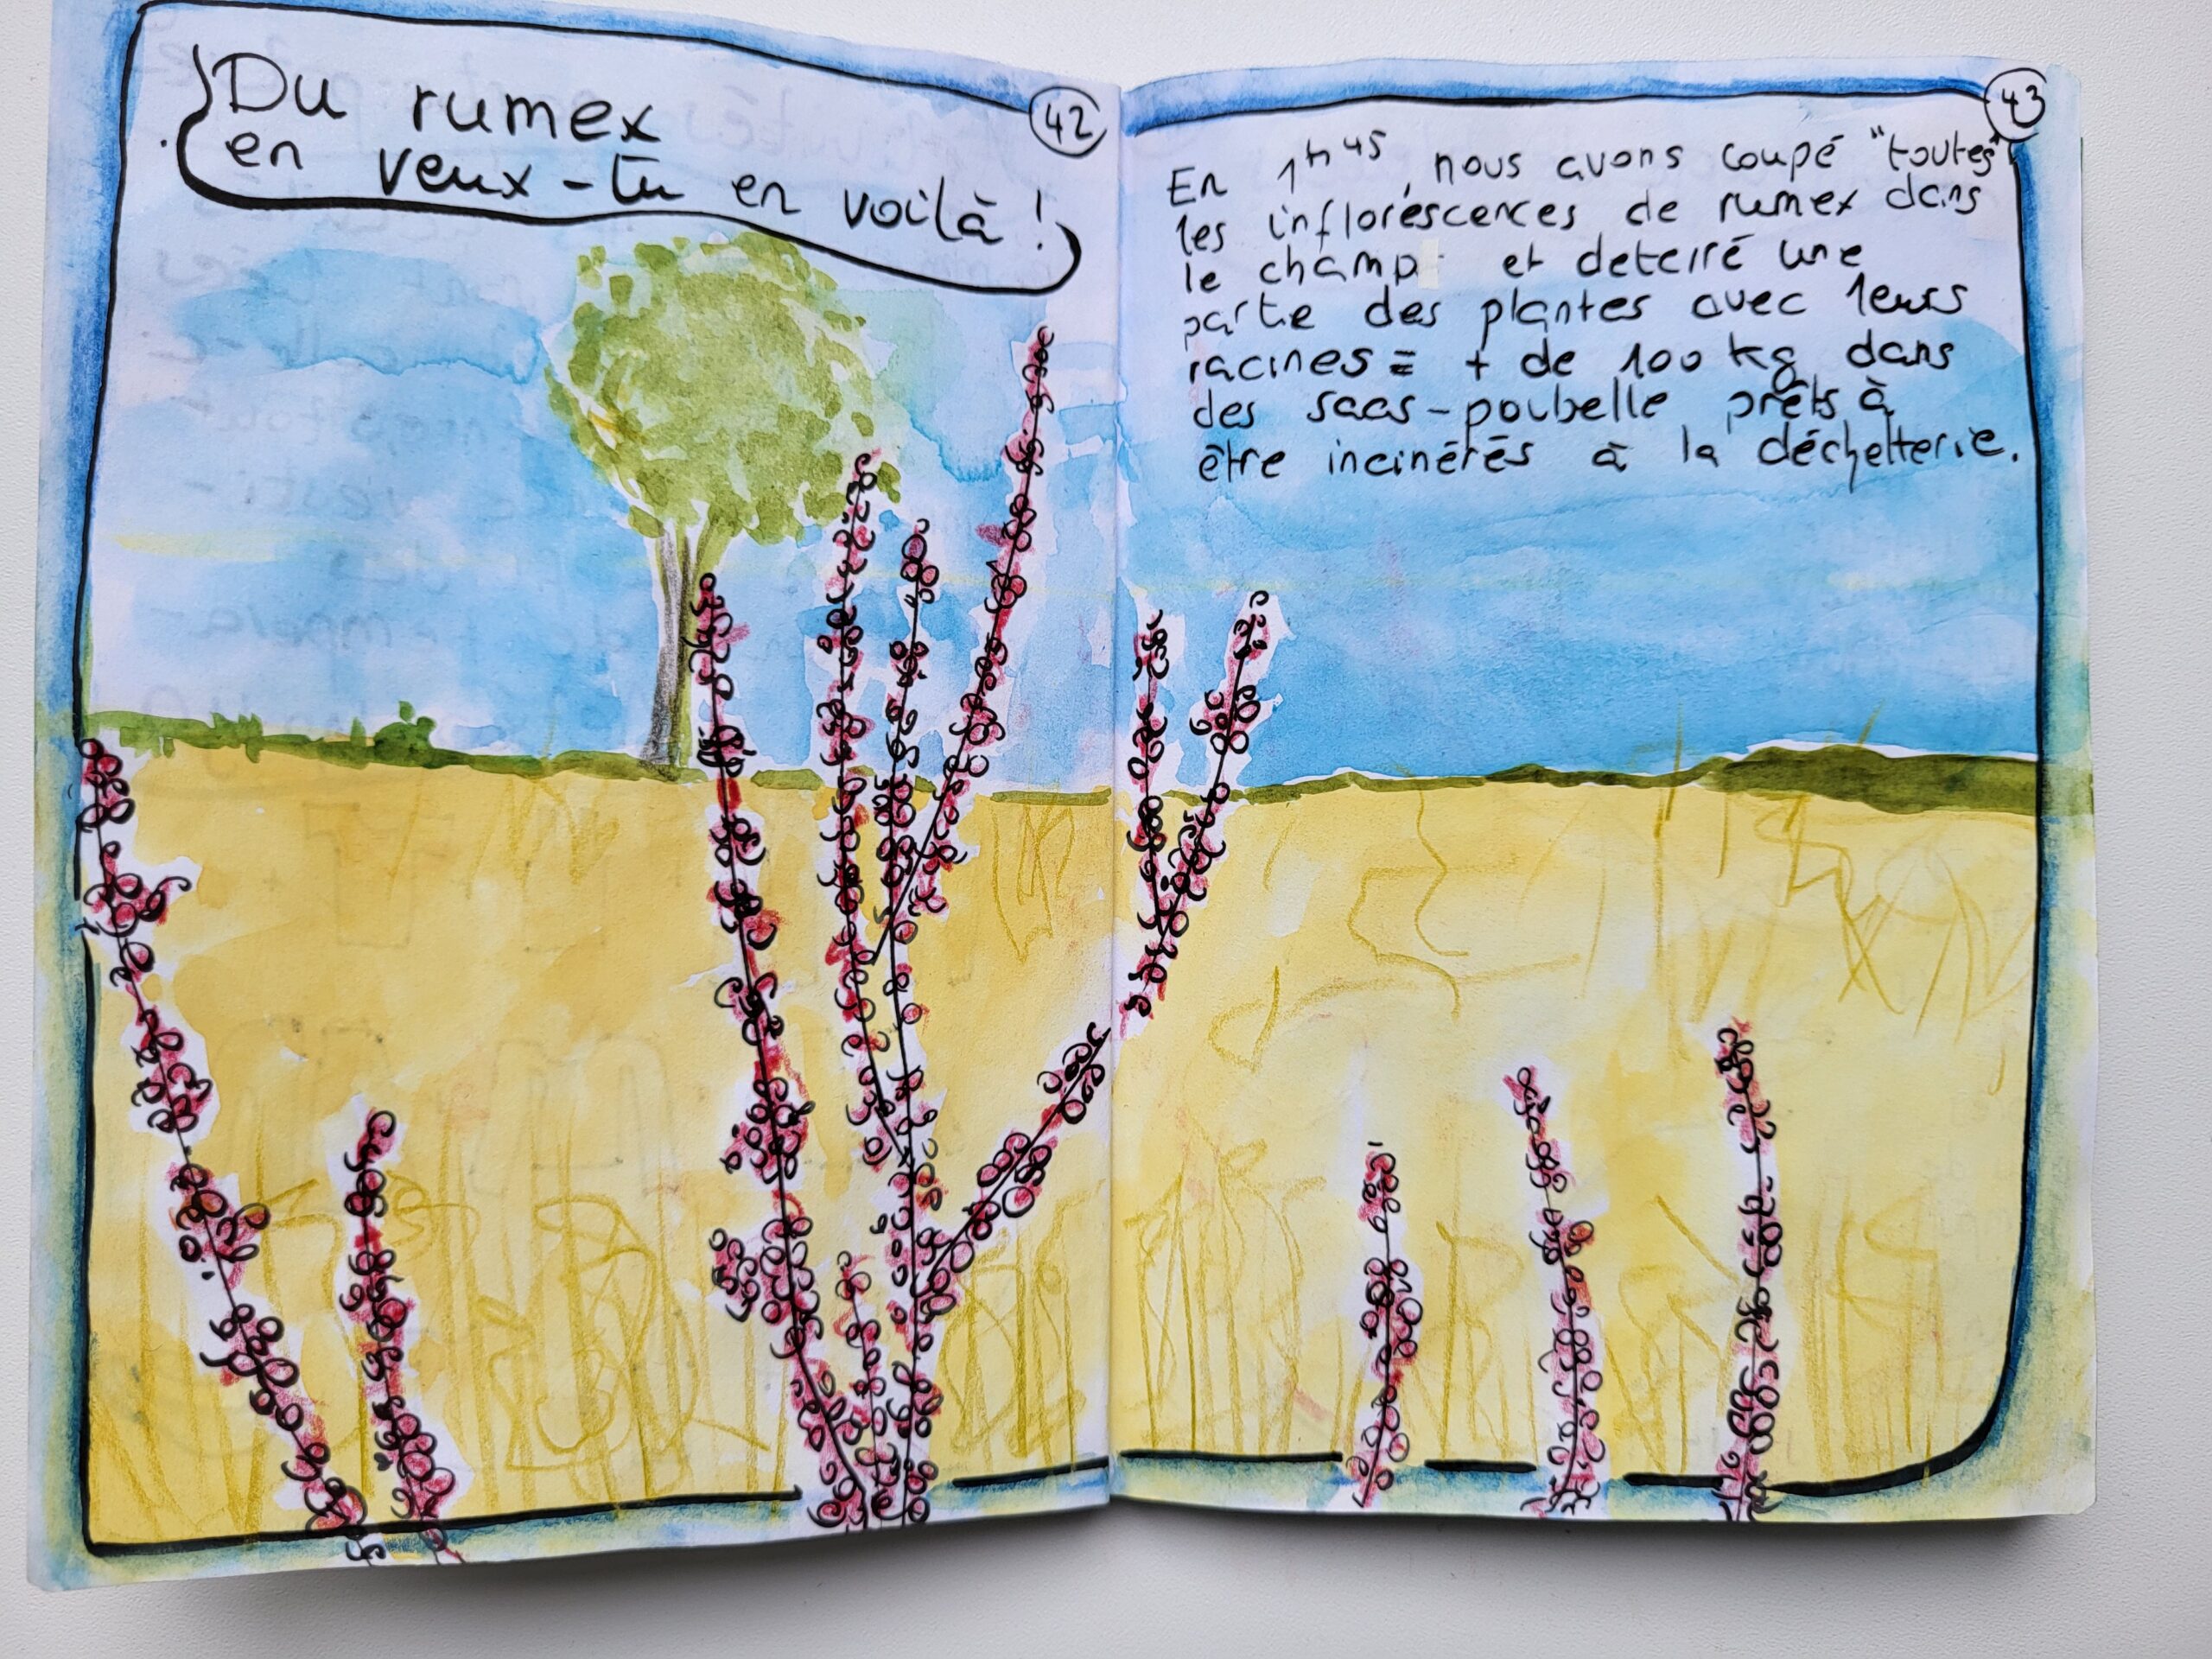 Du rumex
en veux-tu en voilà !
42
43
En 1h45, nous avons coupé "toutes"
les inflorescences de rumex dans
le champ et deterré une
partie des plantes avec leurs
racines = + de 100 kg dans
des sacs-poubelle prêts à
être incinérés à la déchetterie.